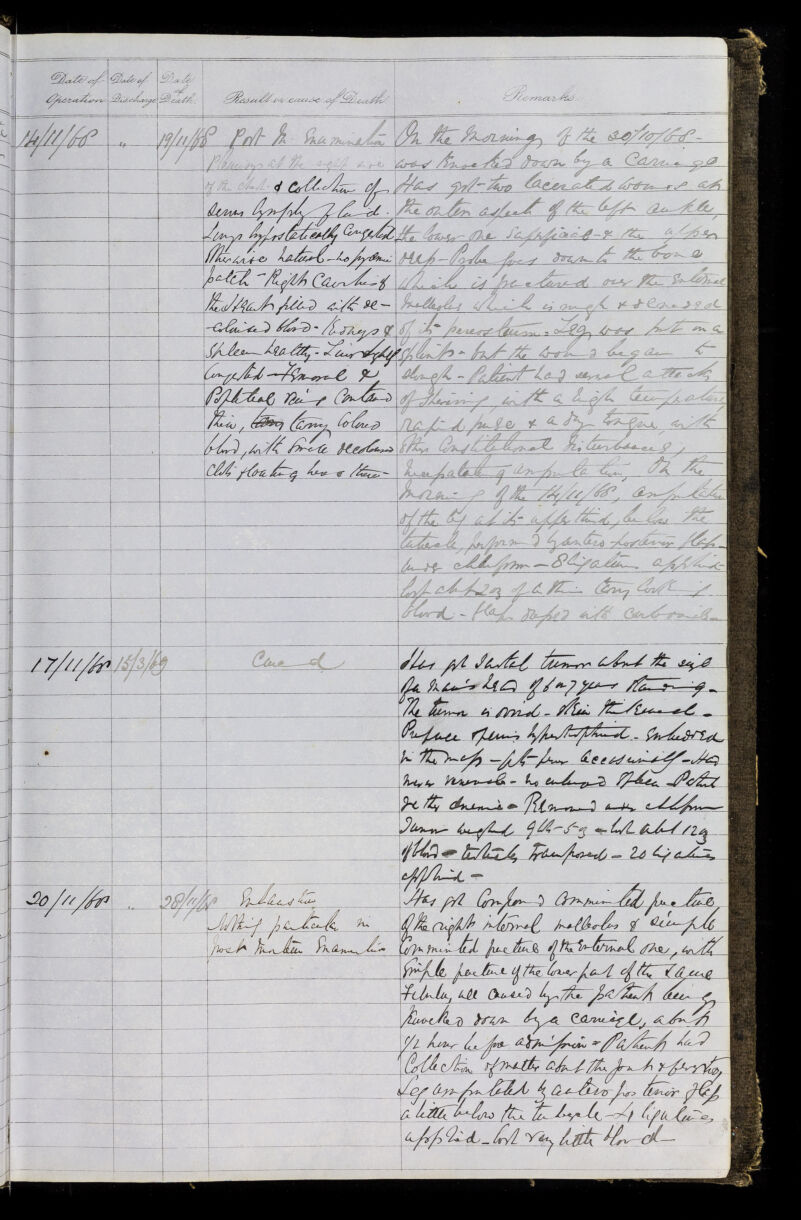 Date of Operation
Date of Discharge
Date of Death
Result or cause of Death
Remarks
14/11/68 " 19/11/68
Post M. Examination
of the chest & collection of
serus lymphy fluid.
Lungs hypostatically Congested
Otherwise natural - no pyemic
patch - Right Cavities of
the Heart filled with de-
-colorised blood - Kidneys &
Spleen healthy - Liver slightly
Congested - Femoral &
Popliteal veins contained
thin, tarry colored
blood, with small decolorised
clots floating here & there -
On the Morning of the 30/10/68 -
was knocked down by a Carriage
Has got two lacerated wounds at
the outer aspect of the left ankle,
the lower one superficial & the upper
deep - Probe goes down to the bone
which is fractured over the External
Malleolus which is rough & denuded
of its periosteum - Leg was put on a
splint - but the wound began to
slough - Patient had several attacks
of shivering, with a high temperature,
rapid pulse & a dry tongue, with
other Constitutional disturbances,
of amputation, On the
Morning of the 14/11/68, amputation
of the leg at its upper third, below the
tubercle, performed by antero-posterior flaps
under chloroform - 8 ligatures applied
lost abt 2 oz of a thin tarry looking
blood - flaps
17/11/68 15/3/69
Cured
Has got Scrotal tumor about the size
of a man's head of 6 or 7 years standing -
The tumor is ovoid - Skin
Prepuce opening hypertrophied - embedded
in the mass - gets fever occasionally - Had
never venereals - no enlarged spleen - Patient
rather anemic - Removed under chloroform
Tumor weighed 9 lbs - 5 oz - lost abt 12 oz
of blood - testicles transposed - 20 ligatures
applied -
20/11/68 " 28/11/68
Exhaustion
Nothing particular in
post mortem Examination
Has got Compound comminuted fracture,
of the right internal malleolus & simple
Comminuted fracture of the External one, with
simple fracture of the lower part of the same
Fibula, all caused by the patient being
knocked down by a carriage, about
1/2 hour before admission - Patient had
Collection of matter about the joint &
Leg amputated by antero posterior flap
a little below the tubercle - 4 ligatures
applied - lost very little blood -